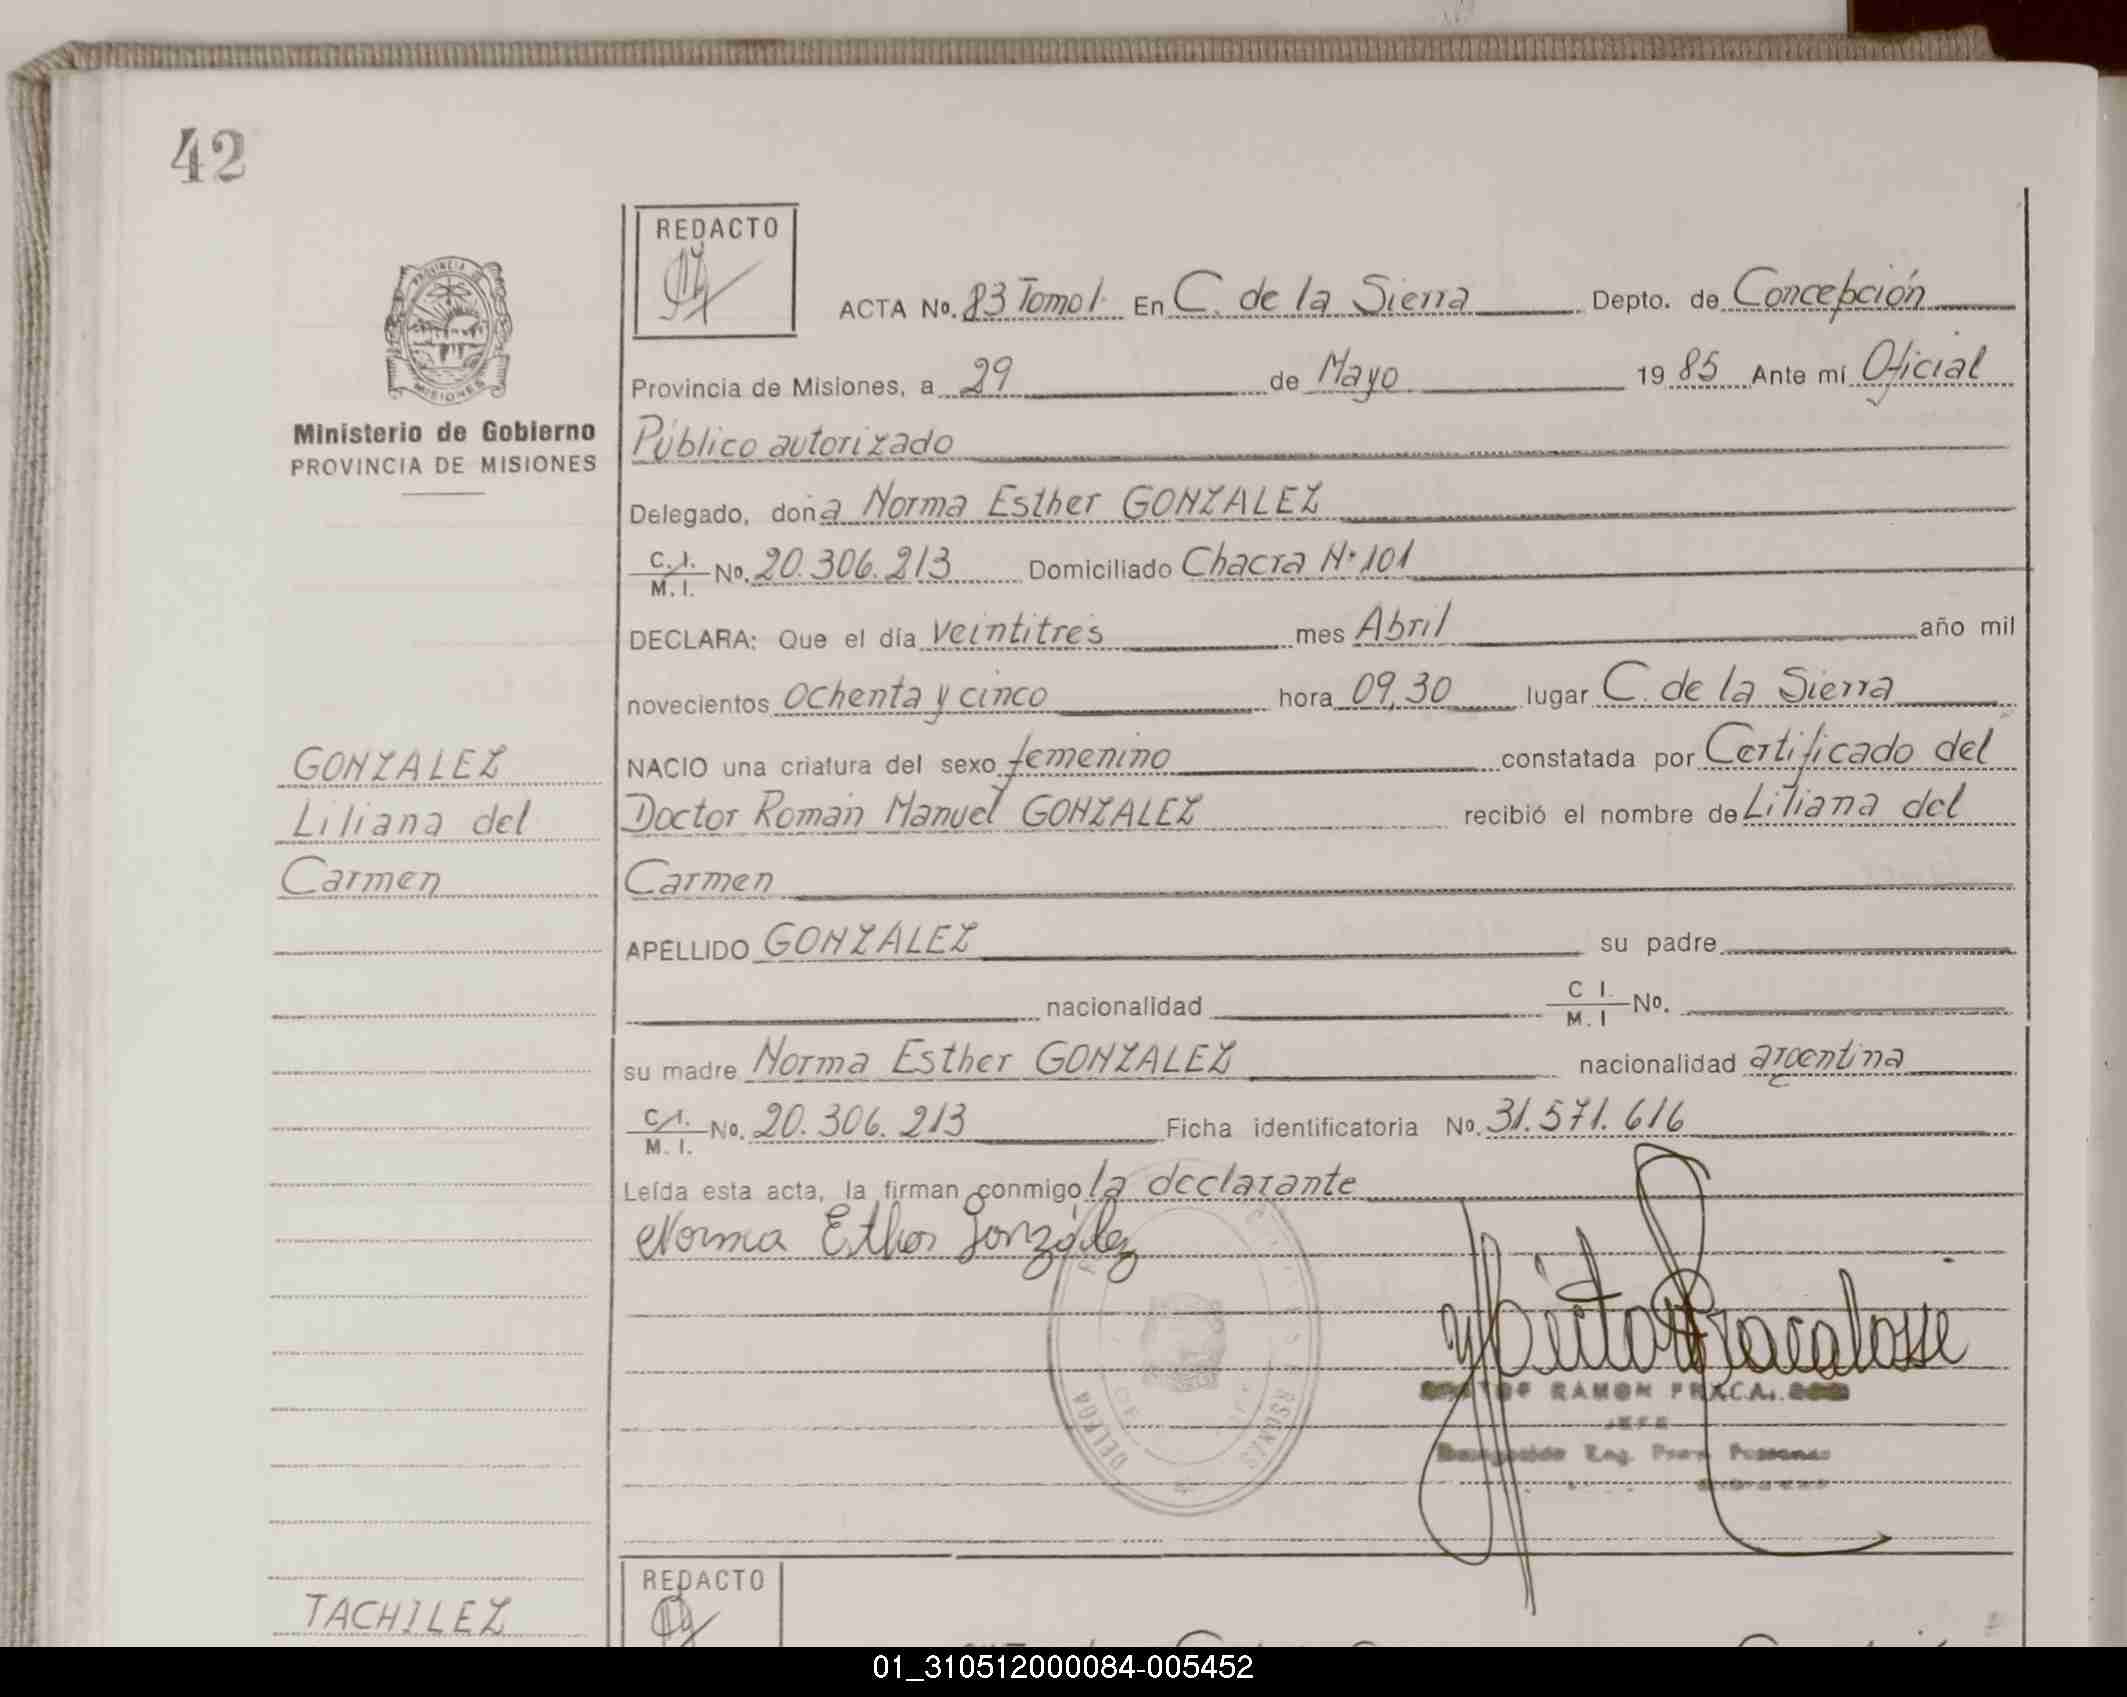 42
REDACTO
ACTA No. 83 Tomo 1. En C. de la Sierra Depto. de Concepción
PROVINCIA DE
MISIONES
Provincia de Misiones, a 29 de Mayo 1985 Ante mí Oficial
Ministerio de Gobierno
PROVINCIA DE MISIONES
Público autorizado
Delegado, doña Norma Esther GONZALEZ
C. I. M. I. No. 20.306.213 Domiciliado Chacra N° 101
DECLARA: Que el día veintitrés mes Abril año mil
novecientos ochenta y cinco hora 09,30 lugar C. de la Sierra
GONZALEZ
Liliana del
Carmen
NACIO una criatura del sexo femenino constatada por Certificado del
Doctor Román Manuel GONZALEZ recibió el nombre de Liliana del
Carmen
APELLIDO GONZALEZ su padre
nacionalidad C I. M. I No.
su madre Norma Esther GONZALEZ nacionalidad argentina
C. I. M. I. No. 20.306.213 Ficha identificatoria No. 31.571.616
Leída esta acta, la firman conmigo la declarante
Norma Esther González
Héctor R Fracalossi
RAMON
JEFE
REDACTO
TACHILEZ
01_310512000084-005452